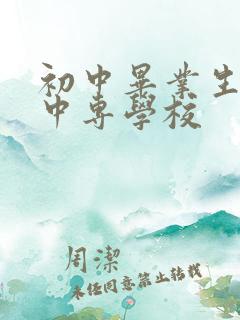 初中畢業生
中專學校
周潔
未經同意禁止轉載